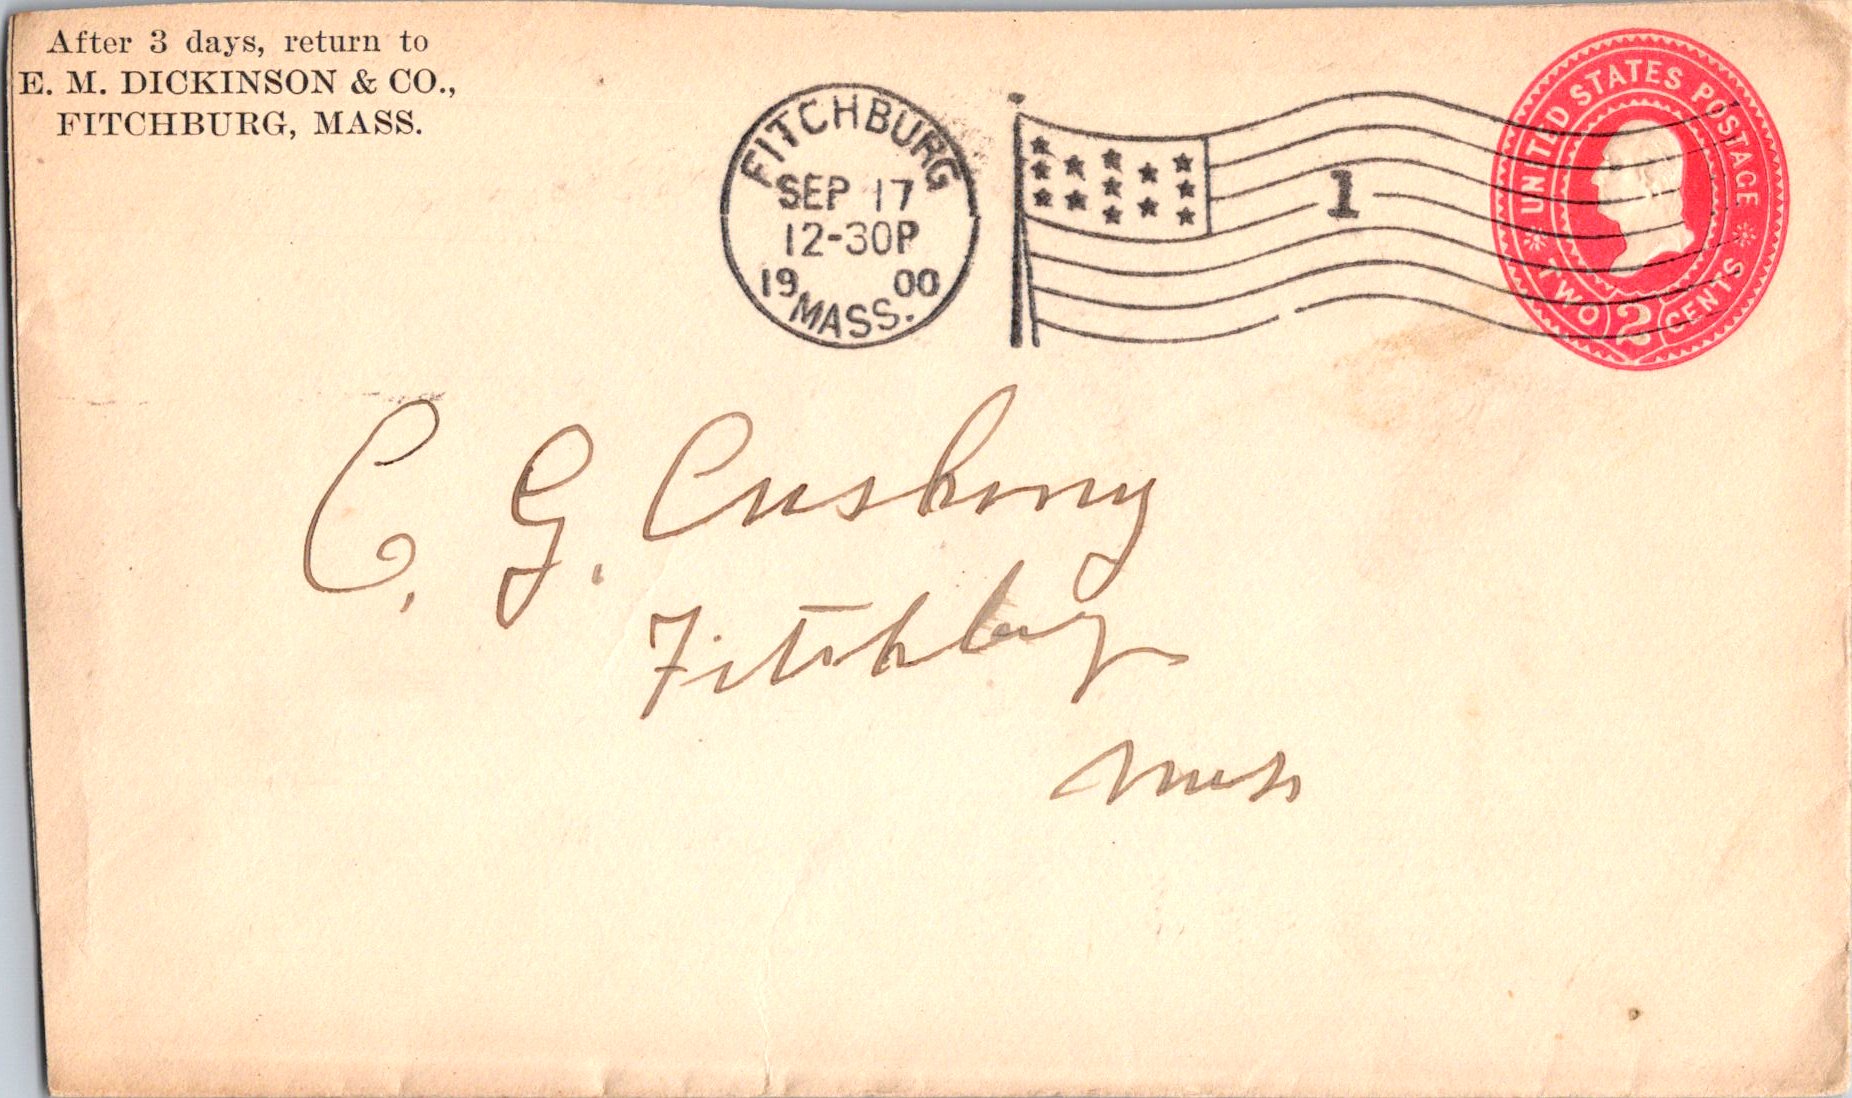 After 3 days, return to
E. M. DICKINSON & CO.,
FITCHBURG, MASS.
FITCHBURG
SEP 17
12-30P
1900
MASS.
1
UNITED STATES POSTAGE
TWO 2 CENTS
C. G. Cushing
Fitchburg
Mass